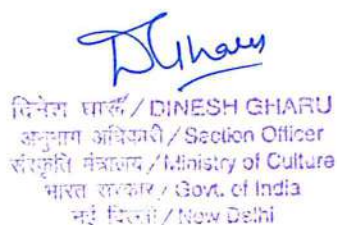 दिनेश घारू / DINESH GHARU
अनुभाग अधिकारी / Section Officer
संस्कृति मंत्रालय / Ministry of Culture
भारत सरकार / Govt. of India
नई दिल्ली / New Delhi